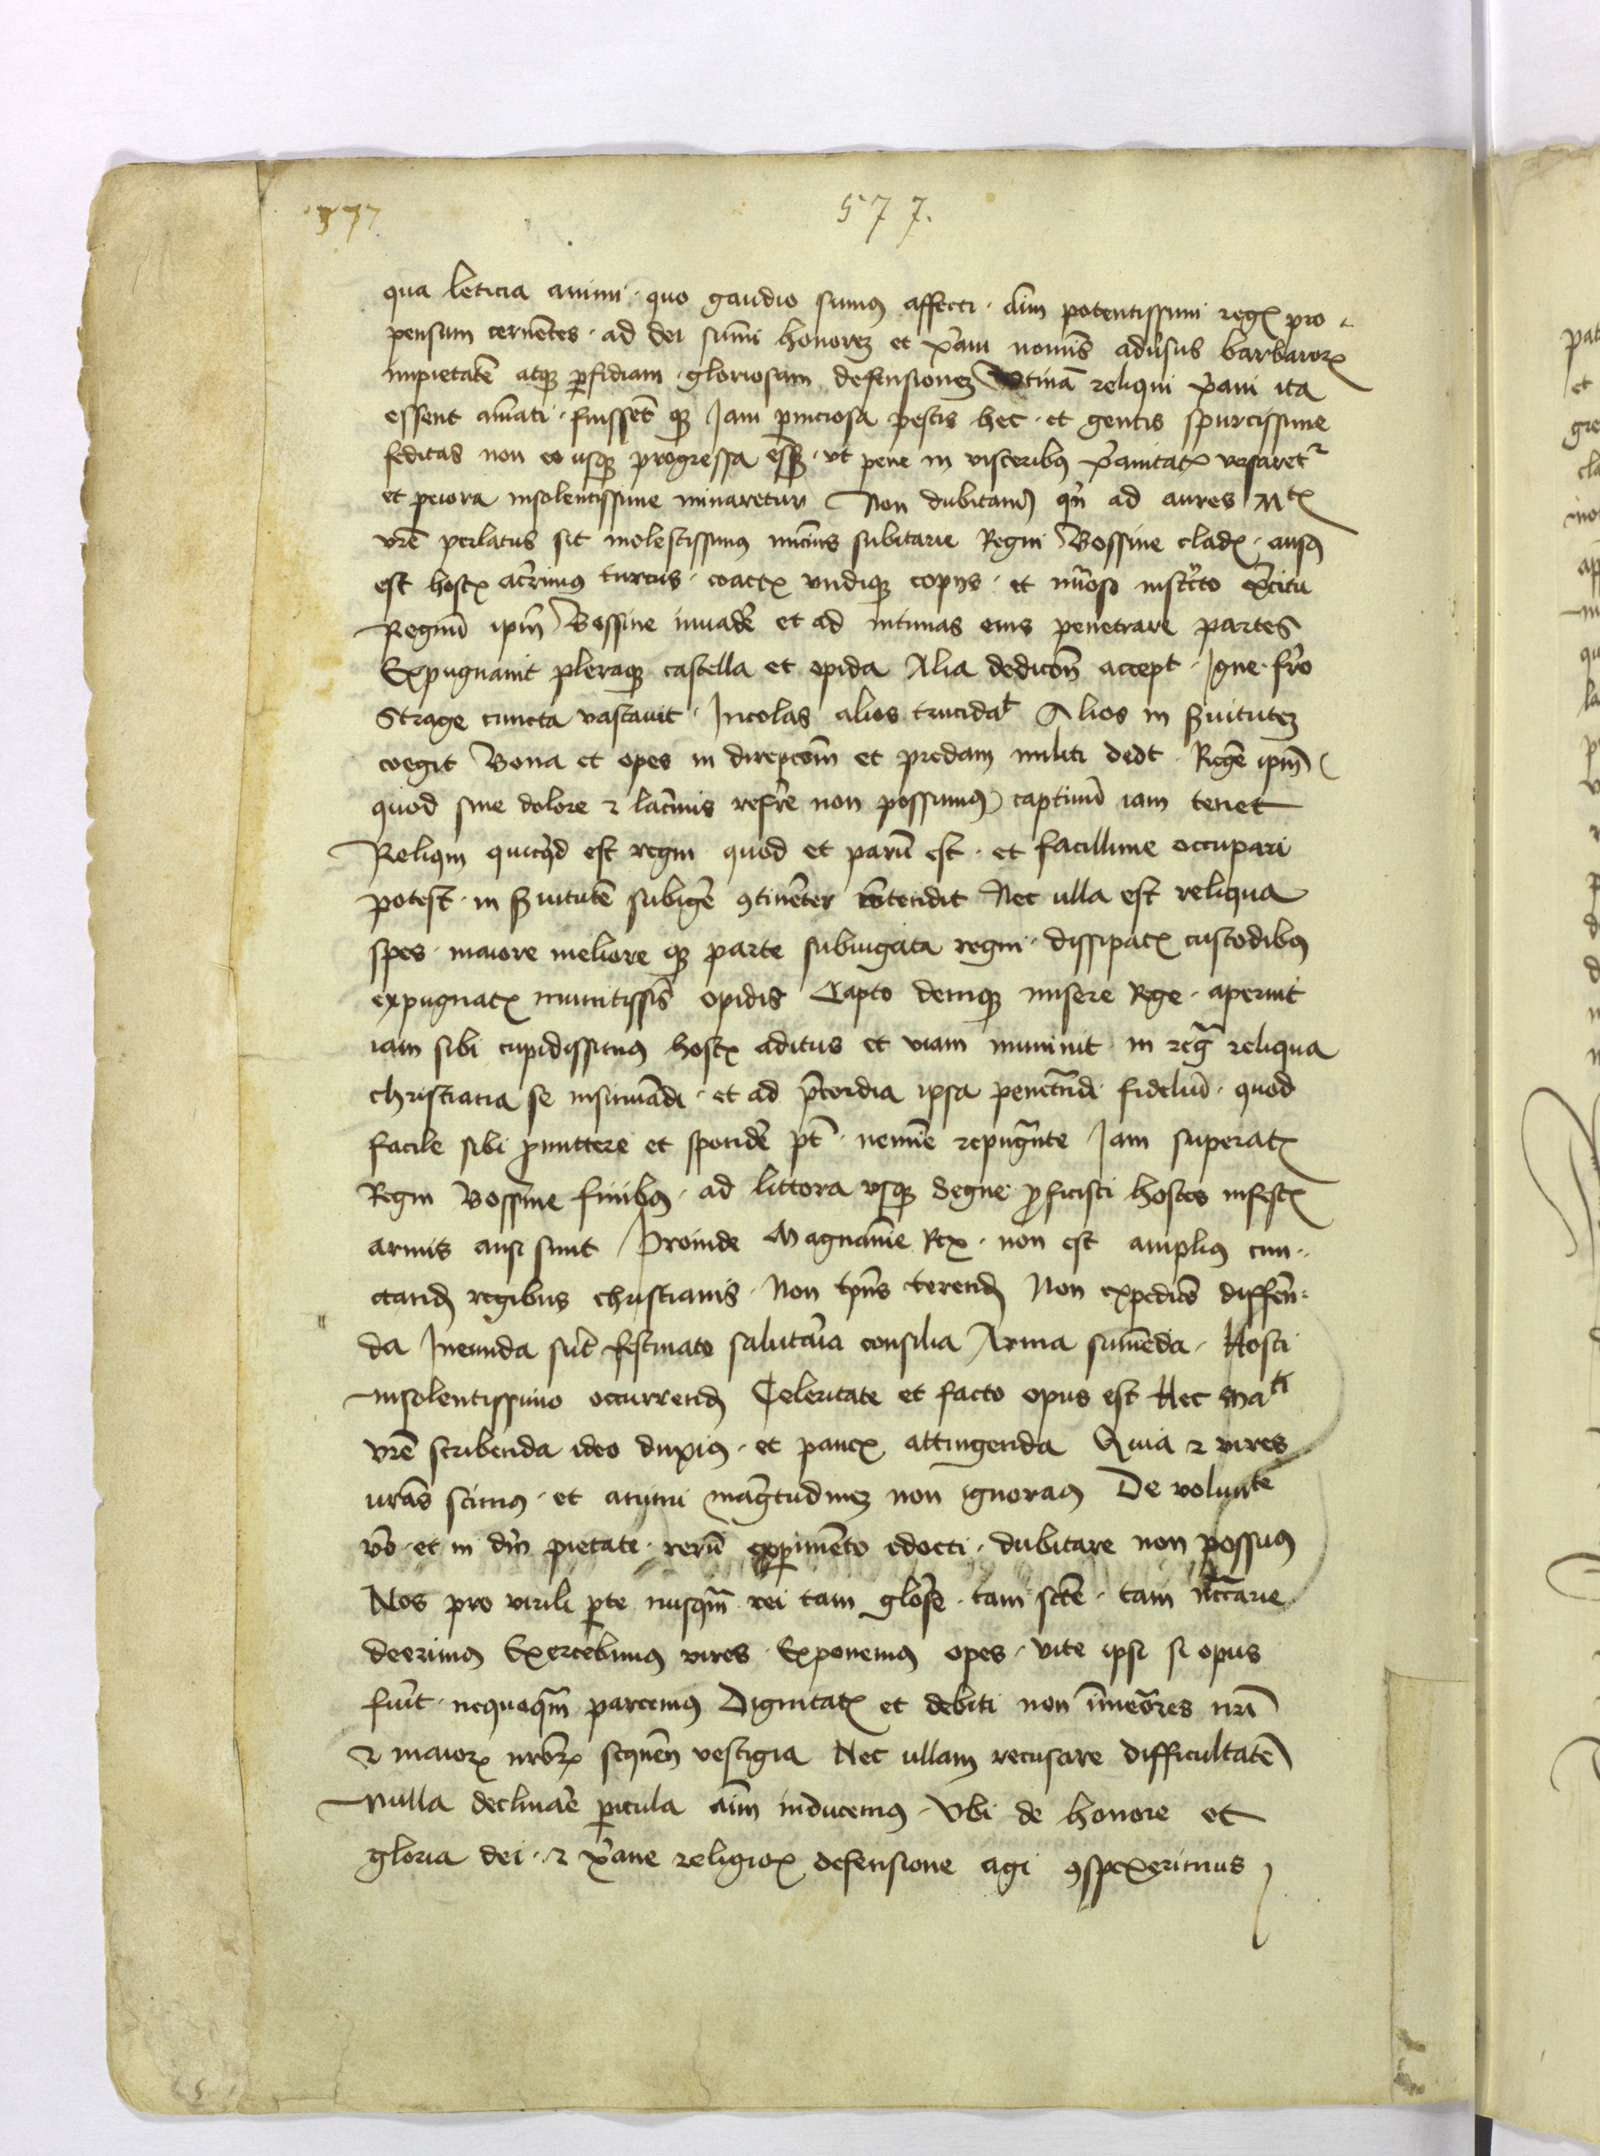 577 577.
qua leticia animi · quo gaudio sumus affecti · aim̄ potentissimi regis pro-
pensum cernētes · ad dei sum̄i honorem et xp̄iani nominis adūsus barbarorum
impietatē atque perfidiam · gloriosam defensionem Vtinā reliqui xp̄iani ita
essent aīmati · fuissētque Jam perniciosa pestis hec · et gentis spurcissime
feditas non eo usque progressa esset · vt pene in visceribus xp̄ianitatis versaretur
et peiora insolentissime minaretur Non dubitam̄ quin ad aures Mtis
vrē perlatus sit molestissimus nuncius subitarie Regni Bossine cladis · ausus
est hostis acerrimus turcus · coactis vndique copijs · et nūoso instructo exercitu
Regnū ipm̄ Bossine inuadē et ad intimas eius penetrare partes
Expugnauit pleraque castella et opida Alia dedicōn accepit · Igne · fr̄o
Strage cuncta vastauit · Incolas alios trucidat Alios in ßuitutem
coegit Bona et opes in direpcōm et predam militi dedit Regē ipm̄ (
quod sine dolore et lacrimis refr̄re non possumus) captiuū iam tenet
Reliqum quicqd est regni quod et parū est · et facillime occupari
potest · in ßuitutē subigē continēter contendit Nec ulla est reliqua
spes · maiore melioreque parte subiugata regni · dissipatis custodibus
expugnatis munitissīs opidis Capto denique misere Rege · aperuit
iam sibi cupidissimus hostis aditus et viam muniuit in regna reliqua
christiana se insinuādi · et ad prēcordia ipsa penetrandi fideliū · quod
facile sibi promittere et spondē pt̄ · nemīe repugnante Jam superatis
Regni Bossine finibus · ad littora vsque Segne proficisci hostes infestis
armis ausi sunt Proinde Magnanīe Rex · non est amplius cun-
ctandum regibus christianis · Non tpūs terendum Non expedicō differen-
da Ineunda sūt festinato salutaria consilia Arma sumēda · Hosti
insolentissimo occurrendum Celeritate et facto opus est Hec Mati
vrē scribenda ideo duximus · et paucis attingenda Quia et vires
vrās scimus · et animi magnitudinem non ignoramus De voluntate
vero et in dm̄ pietate · rerū experimēto edocti · dubitare non possumus
Nos pro virili parte nusquam rei tam gloriose · tam scē · tam necessarie
deerimus Exercebimus vires · Exponemus opes · vite ipsi si opus
fuerit · nequaquam parcemus Dignitatis et debiti non īmemores nrī
et maiorum nrōrum sequēn vestigia Nec ullam recusare difficultatē
Nulla declinare pericula aīm inducemus · Vbi de honore et
gloria dei · et xp̄iane religionis defensione agi conspexerimus